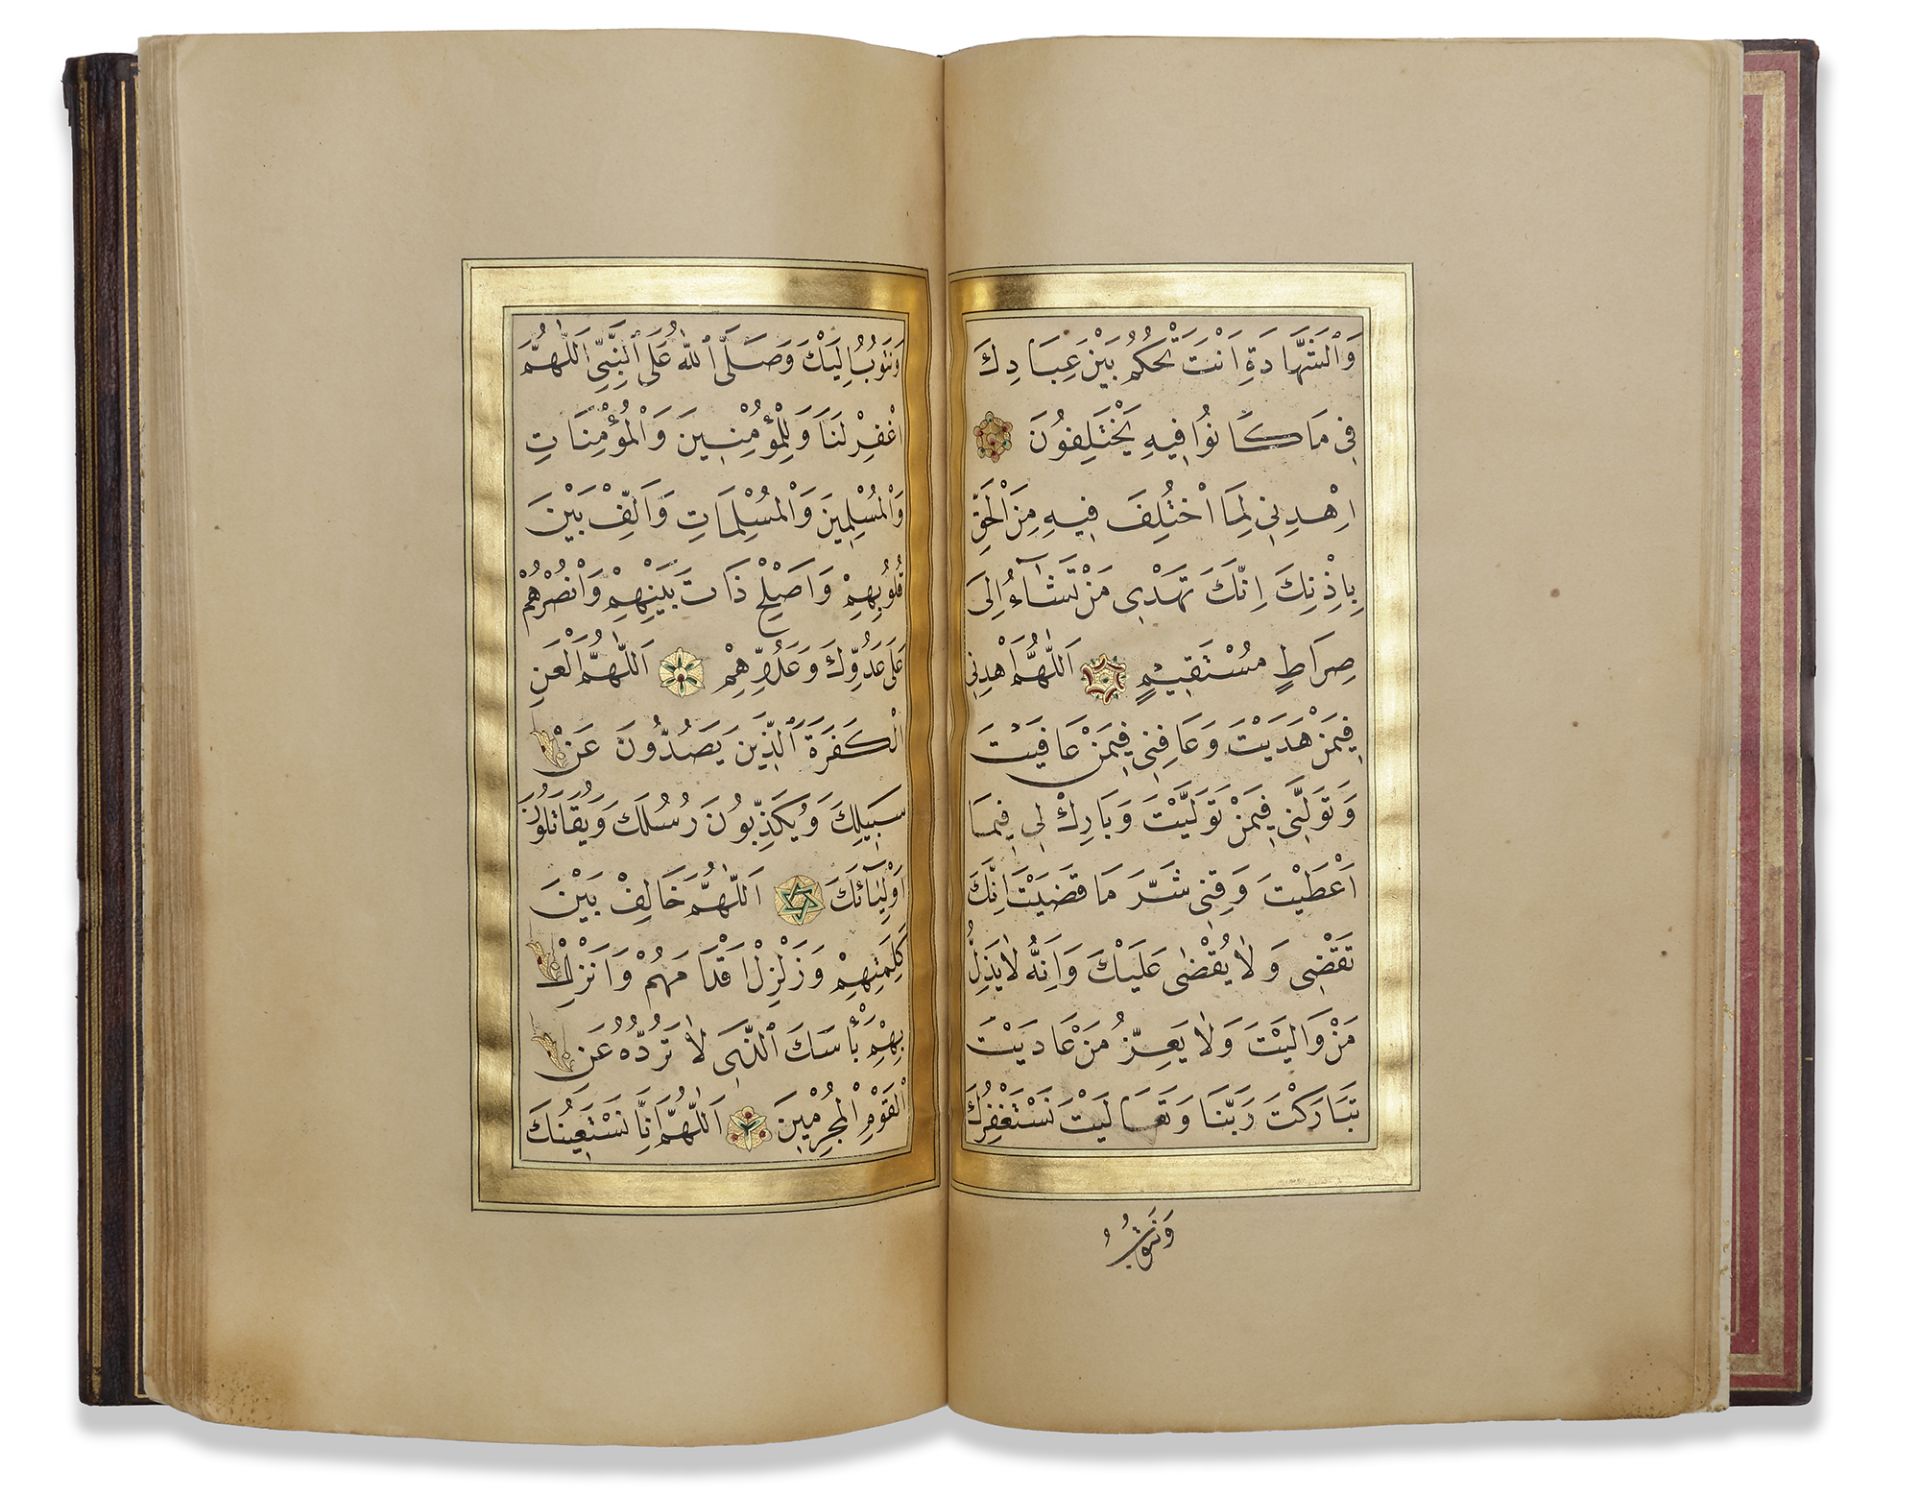 وَالشَّهَادَةِ اَنْتَ تَحْكُمُ بَيْنَ عِبَادِكَ
فِي مَا كَانُوا فِيهِ يَخْتَلِفُونَ
اِهْدِنِي لِمَا اخْتُلِفَ فِيهِ مِنَ الْحَقِّ
بِاِذْنِكَ اِنَّكَ تَهْدِي مَنْ تَشَآءُ اِلَى
صِرَاطٍ مُسْتَقِيمٍ اَللّٰهُمَّ اهْدِنِي
فِيمَنْ هَدَيْتَ وَعَافِنِي فِيمَنْ عَافَيْتَ
وَتَوَلَّنِي فِيمَنْ تَوَلَّيْتَ وَبَارِكْ لِي فِيمَا
اَعْطَيْتَ وَقِنِي شَرَّ مَا قَضَيْتَ اِنَّكَ
تَقْضِي وَلَا يُقْضٰى عَلَيْكَ وَاِنَّهُ لَا يَذِلُّ
مَنْ وَالَيْتَ وَلَا يَعِزُّ مَنْ عَادَيْتَ
تَبَارَكْتَ رَبَّنَا وَتَعَالَيْتَ نَسْتَغْفِرُكَ
وَنَتُوبُ
وَنَتُوبُ اِلَيْكَ وَصَلَّى اللهُ عَلَى النَّبِيِّ اَللّٰهُمَّ
اغْفِرْ لَنَا وَلِلْمُؤْمِنِينَ وَالْمُؤْمِنَاتِ
وَالْمُسْلِمِينَ وَالْمُسْلِمَاتِ وَاَلِّفْ بَيْنَ
قُلُوبِهِمْ وَاَصْلِحْ ذَاتَ بَيْنِهِمْ وَانْصُرْهُمْ
عَلَى عَدُوِّكَ وَعَدُوِّهِمْ اَللّٰهُمَّ الْعَنِ
الْكَفَرَةَ الَّذِينَ يَصُدُّونَ عَنْ
سَبِيلِكَ وَيُكَذِّبُونَ رُسُلَكَ وَيُقَاتِلُونَ
اَوْلِيَآئَكَ اَللّٰهُمَّ خَالِفْ بَيْنَ
كَلِمَتِهِمْ وَزَلْزِلْ اَقْدَامَهُمْ وَاَنْزِلْ
بِهِمْ بَأْسَكَ الَّذِي لَا تَرُدُّهُ عَنِ
الْقَوْمِ الْمُجْرِمِينَ اَللّٰهُمَّ اِنَّا نَسْتَعِينُكَ